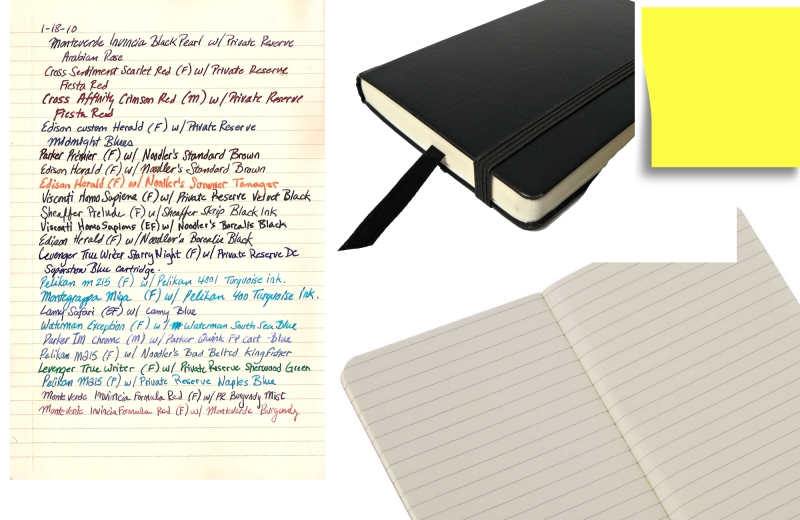 1-18-10
Monteverde Invincia Black Pearl w/ Private Reserve
Arabian Rose
Cross Sentiment Scarlet Red (F) w/ Private Reserve
Fiesta Red
Cross Affinity Crimson Red (M) w/ Private Reserve
Fiesta Red
Edison custom Herald (F) w/ Private Reserve
Midnight Blues
Parker Premier (F) w/ Noodler's Standard Brown
Edison Herald (F) w/ Noodler's Standard Brown
Edison Herald (F) w/ Noodler's Summer Tanager
Visconti HomoSapiens (F) w/ Private Reserve Velvet Black
Sheaffer Prelude (F) w/ Sheaffer Skrip Black Ink
Visconti HomoSapiens (EF) w/ Noodler's Borealis Black
Edison Herald (F) w/ Noodler's Borealis Black
Levenger True Writer Starry Night (F) w/ Private Reserve DC
Supershow Blue cartridge.
Pelikan m 215 (F) w/ Pelikan 4001 Turquoise ink.
Montegrappa Miya (F) w/ Pelikan 400 Turquoise Ink.
Lamy Safari (EF) w/ Lamy Blue
Waterman Exception (F) w/ Waterman South Sea Blue
Parker IM chrome (M) w/ Parker Quink FP cart -Blue
Pelikan M215 (F) w/ Noodler's Bad Belted Kingfisher
Levenger True Writer (F) w/ Private Reserve Sherwood Green
Pelikan M215 (F) w/ Private Reserve Naples Blue
Monteverde Invincia Formula Red (F) w/ PR Burgundy Mist
Monteverde Invincia Formula Red (F) w/ Monteverde Burgundy